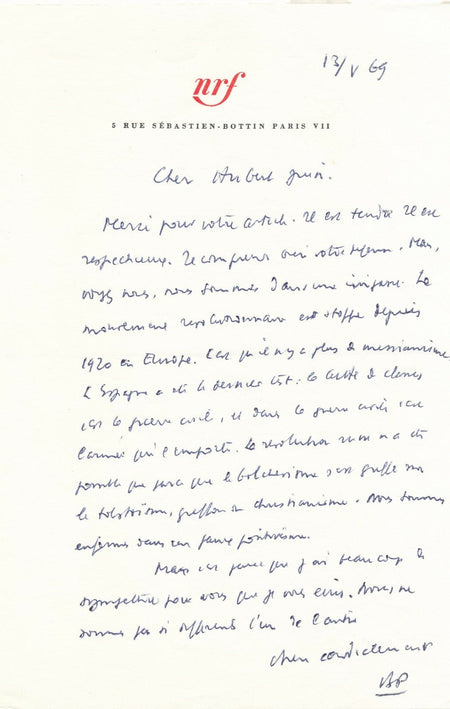 13/V 69
nrf
5 RUE SÉBASTIEN-BOTTIN PARIS VII
Cher Hubert Juin.
Merci pour votre article. Il est tendre il est
respectueux. Je comprends votre. Mais,
voyez vous, nous sommes dans une impasse. Le
mouvement révolutionnaire est stoppé depuis
1920 en Europe. C'est qu'il n'y a plus de messianisme
L'Espagne a été le dernier : la lutte de classes
c'est la guerre civile, et dans la guerre civile c'est
l'armée qui l'emporte. La révolution russe n'a été
possible que parce que le bolchevisme s'est greffé sur
le tolstoïsme, christianisme. Nous sommes
enfermés dans un faux positivisme.
Mais c'est parce que j'ai beaucoup de
sympathie pour vous que je vous écris. Nous ne
sommes pas si différents l'un de l'autre
cordialement